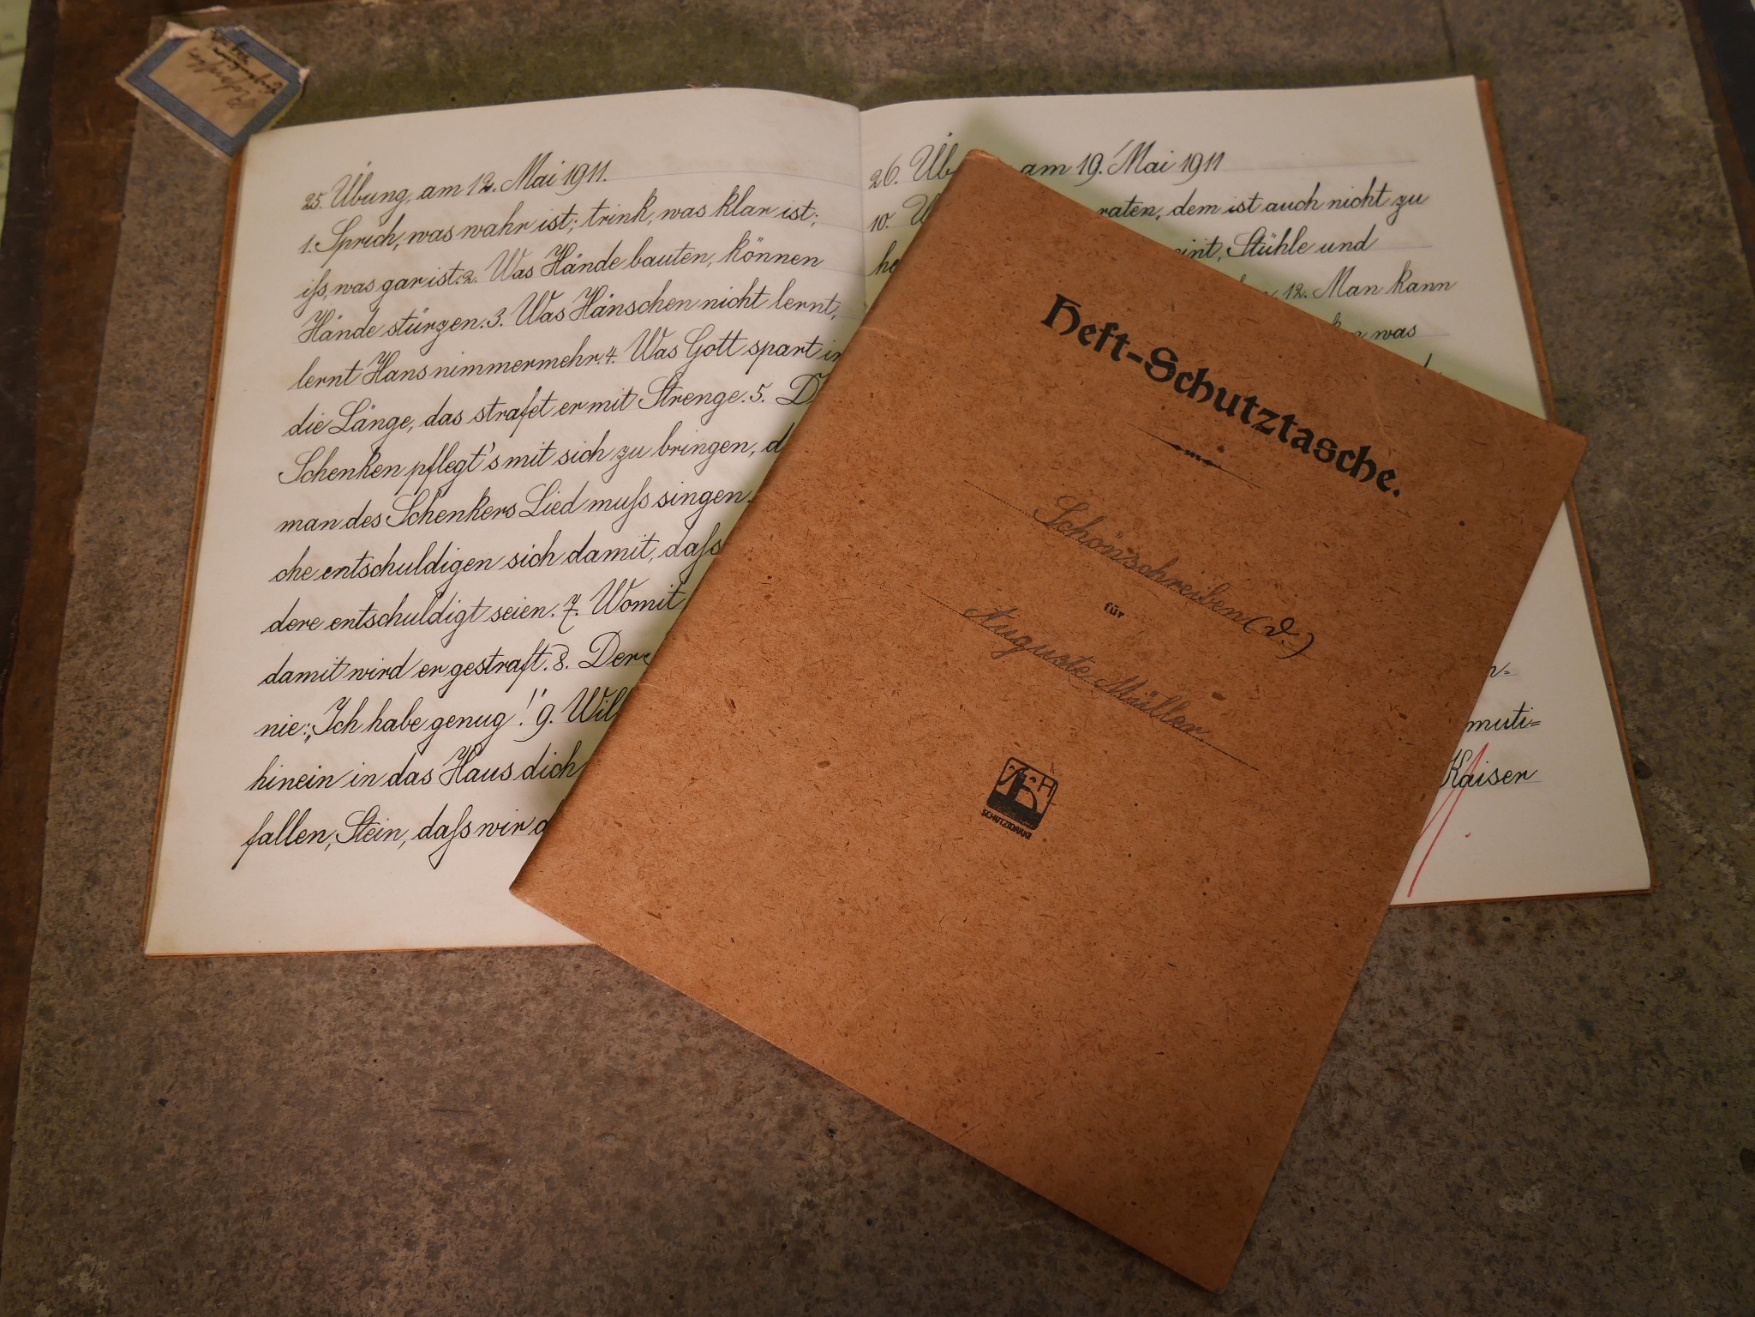 25. Übung, am 12. Mai 1911.
1. Sprich, was wahr ist; trink, was klar ist;
iſs, was gar ist. 2. Was Hände bauten, können
Hände stürzen. 3. Was Hänschen nicht lernt,
lernt Hans nimmermehr. 4. Was Gott spart in
die Länge, das strafet er mit Strenge. 5. D
Schenken pflegt's mit sich zu bringen, d
man des Schenkers Lied muſs singen.
che entschuldigen sich damit, daſs
dere entschuldigt seien. 7. Womit
damit wird er gestraft. 8. Der
nie: „Ich habe genug!" 9. Wil
hinein in das Haus dich
fallen, Stein, daſs wir d
26. Üb am 19. Mai 1911
10. W raten, dem ist auch nicht zu
he int, Stühle und
12. Man kann
was
muti=
Kaiser
Heft-Schutztasche.
Schönschreiben (d.)
für
Auguste Müller.